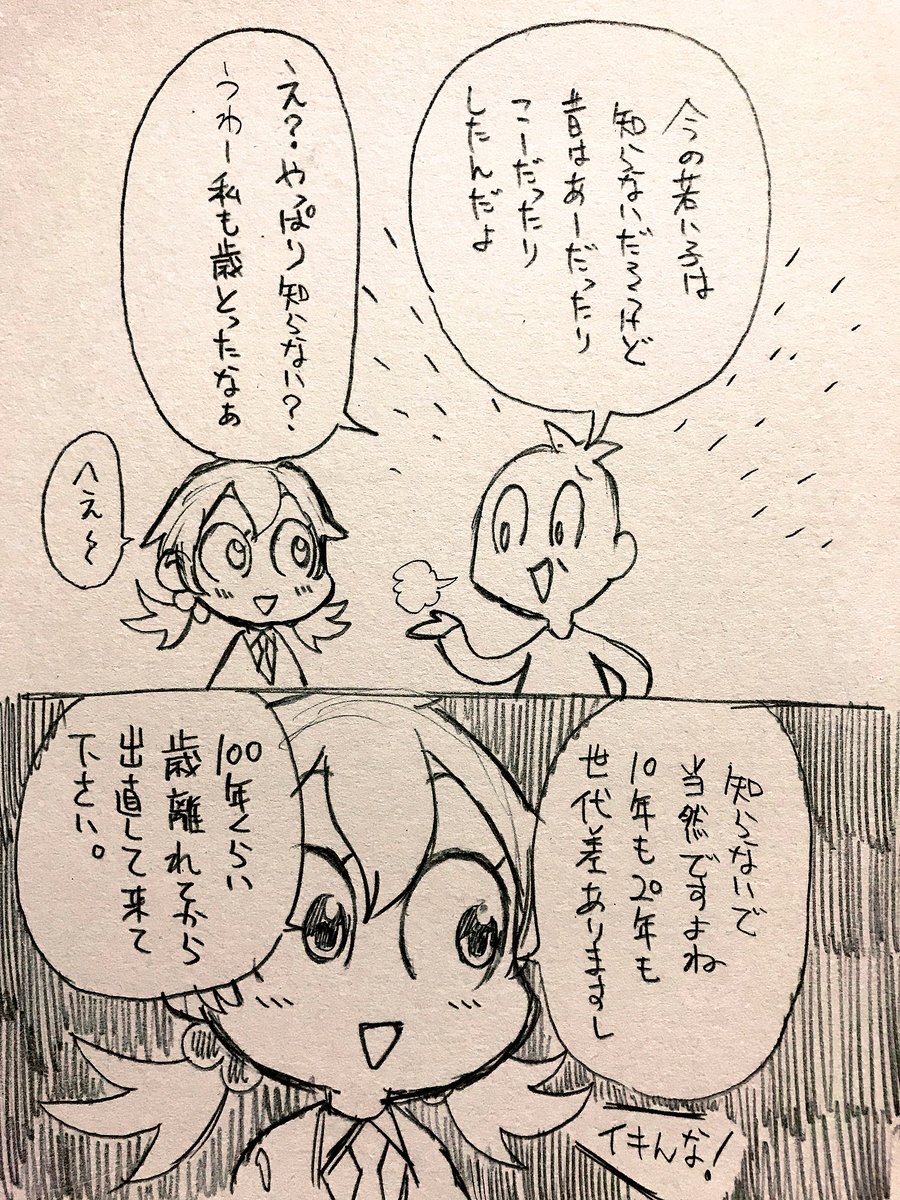 今の若い子は
知らないだろうけど
昔はあーだったり
こーだったり
したんだよ
え?やっぱり知らない?
うわー私も歳とったなぁ
へえ〜
知らないで
当然ですよね
10年も20年も
世代差ありますし
100年くらい
歳離れてから
出直して来て
下さい。
イキんな!